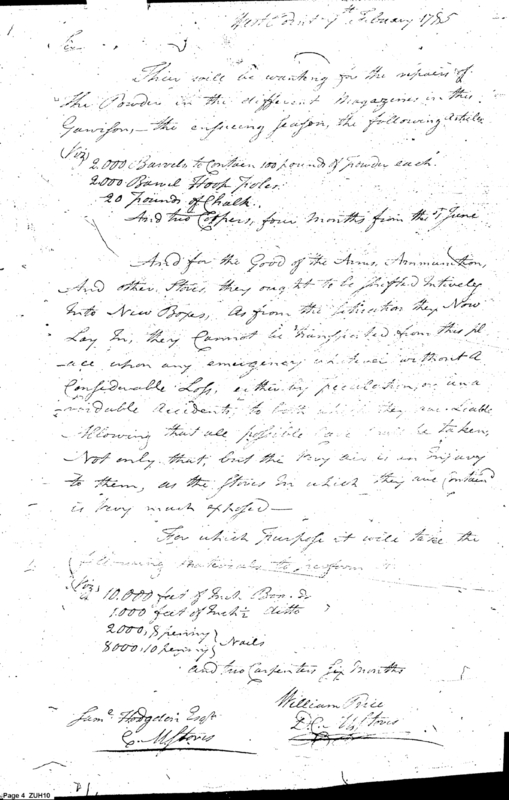 West Point 7th February 1785
Sir
Their will be wanting for the repairs of
the Powder in the different Magazenes in this
Garrison, the ensueing Season, the following Articles
(Viz)
2.000 Barrels to Contain 100 pounds of powder each
2000 Barrel Hoop Poles
20 Pounds of Chalk
And two Coopers, four Months from the 1st June
And for the Good of the Arms, Ammunition,
And other Stores, they ought to be shifted Intirely
Into New Boxes, As from the situation they Now
Lay In, they Cannot be transported from this pl
-ace upon any emergency whatever without A
Considerable Loss, either by peculation, or una
-voidable Accidents, to both which they are Liable
Allowing that all possible Care be taken,
Not only that, but the very air is an Injury
to them, as the Stores In which they are Contain'd
is very much exposed—
For which Purpose it will take the
following Materials to perform it
(Viz)
10.000 feet of Inch Boards
1.000 feet of Inch ½ ditto
2000, 8 penny } Nails
8000, 10 penny
and two Carpenters Six Months
William Price
D.C. M Stores
Saml Hodgdon Esqr
C. M Stores
Page 4 ZUH10